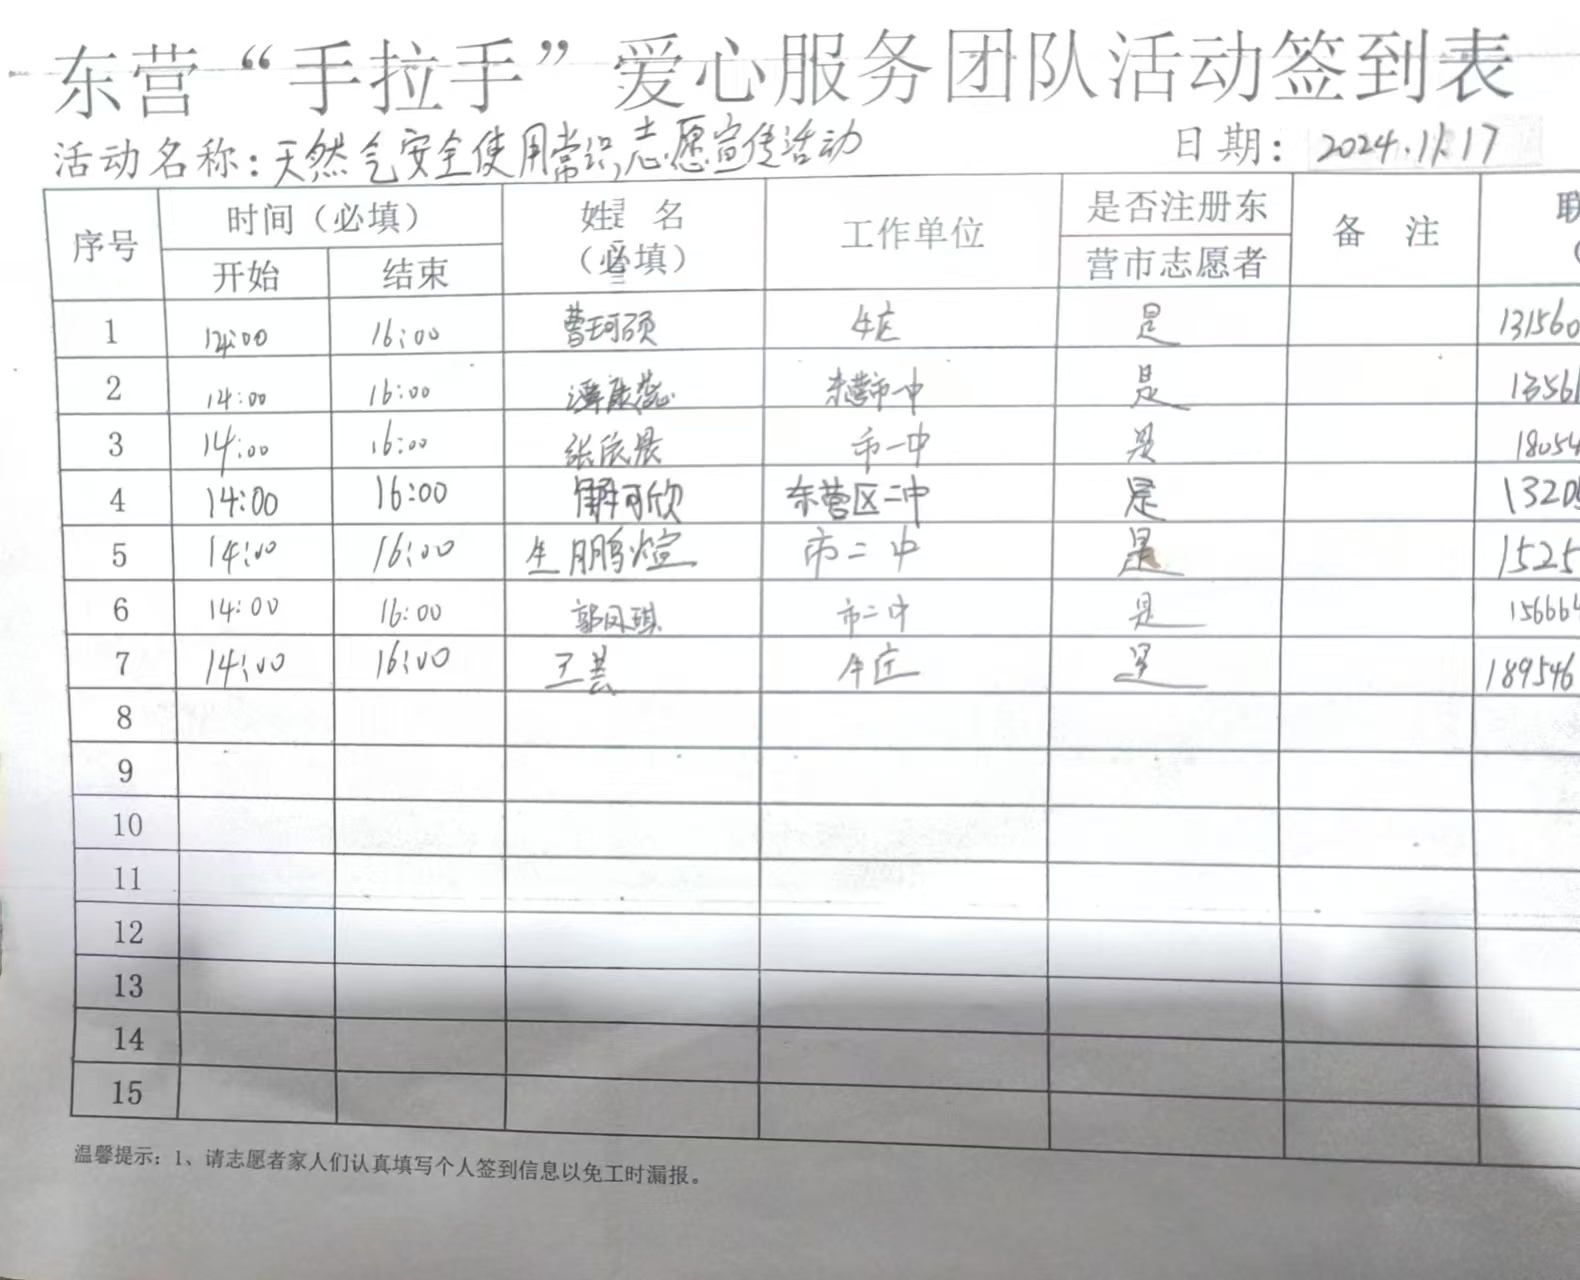 东营“手拉手”爱心服务团队活动签到表
活动名称：天然气安全使用常识志愿宣传活动 日期：2024.11.17
序号 时间（必填） 姓 名（必填） 工作单位 是否注册东营市志愿者 备 注 联
开始 结束
1 14:00 16:00 曹珂硕 牛庄 是 131560
2 14:00 16:00 东营市一中 是 13561
3 14:00 16:00 张依晨 市一中 是 18054
4 14:00 16:00 解可欣 东营区二中 是 13205
5 14:00 16:00 生鹏煊 市二中 是 1525
6 14:00 16:00 郭凤琪 市二中 是 156664
7 14:00 16:00 王芸 牛庄 是 189546
8
9
10
11
12
13
14
15
温馨提示：1、请志愿者家人们认真填写个人签到信息以免工时漏报。